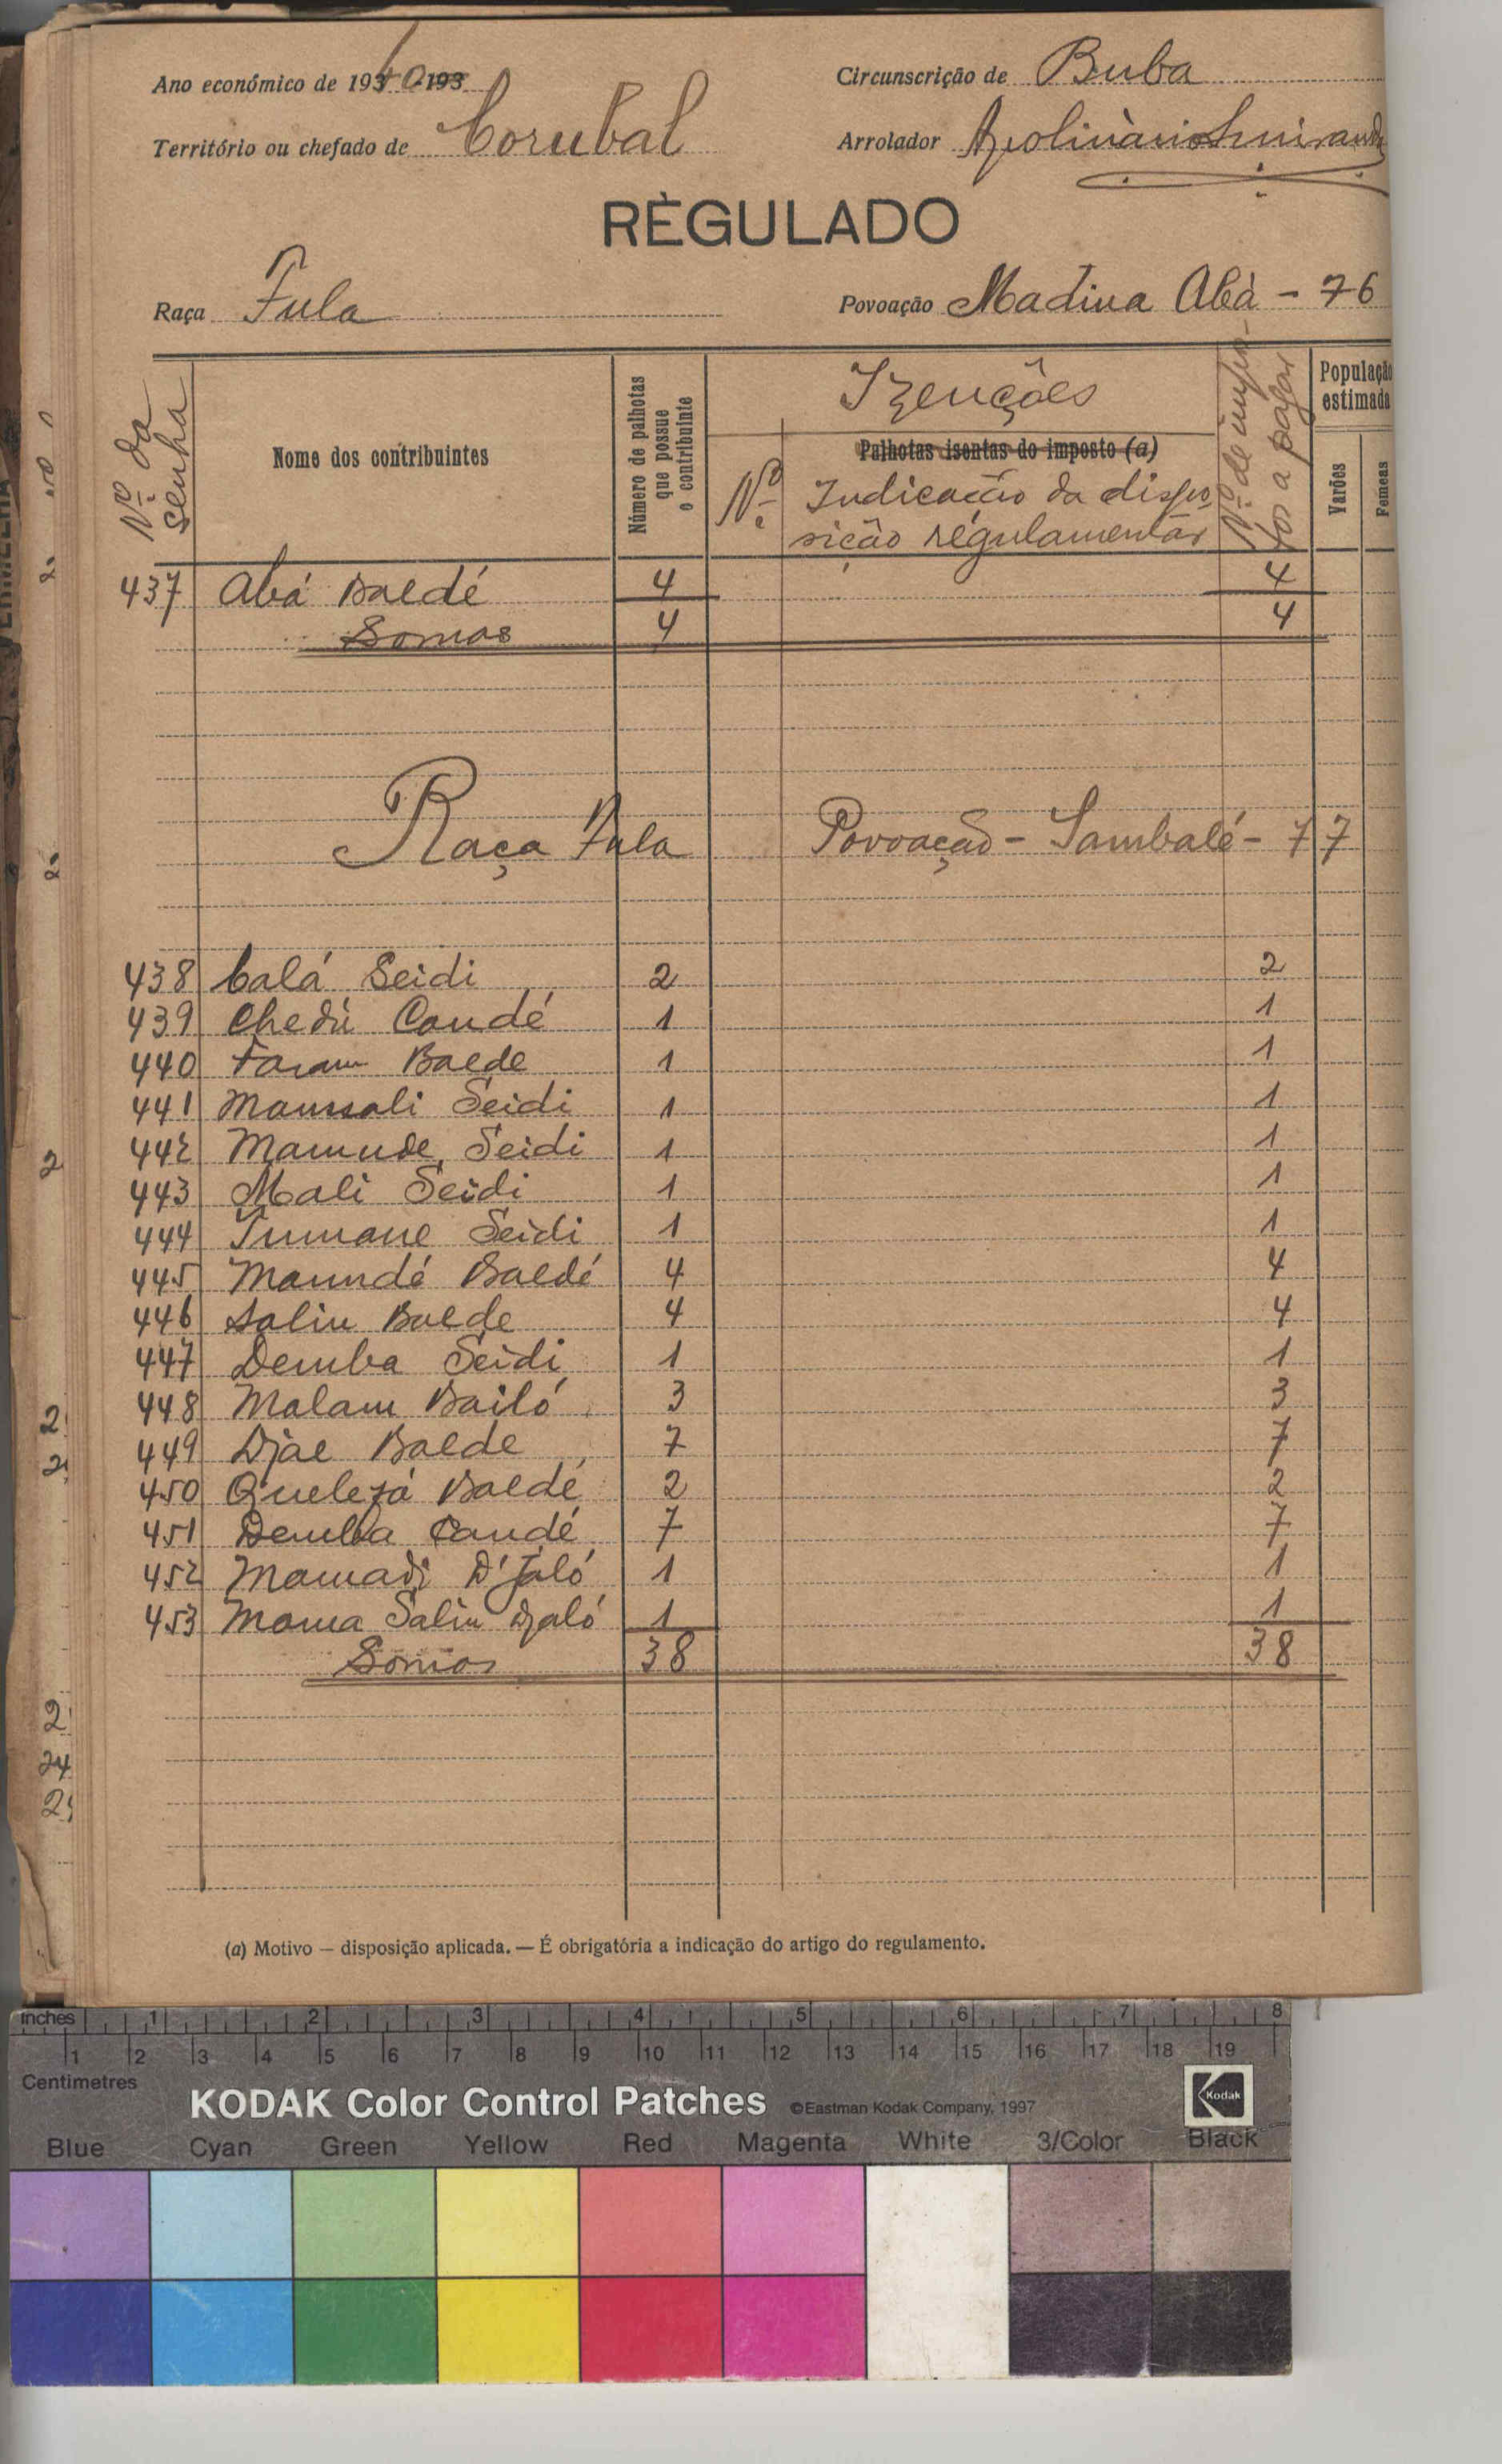 Ano económico de 1940
Circunscrição de Buba
Território ou chefado de Corubal
Arrolador
RÈGULADO
Raça Fula
Povoação Madina Abà - 76
Nº da senha
Nome dos contribuintes
Número de palhotas que possue o contribuinte
Izenções
Palhotas isentas do imposto (a)
Nº
Indicação da disposição régulamentar
Nº de impostos a pagar
População estimada
Varões
Femeas
437 Abá Baldé 4 4
Somas 4 4
Raça Fula Povoação - Sambalé - 77
438 Calá Seidi 2 2
439 Chedú Candé 1 1
440 Faram Balde 1 1
441 Maussali Seidi 1 1
442 Mamude Seidi 1 1
443 Mali Seidi 1 1
444 Tumane Seidi 1 1
445 Maundé Baldé 4 4
446 Saliu Balde 4 4
447 Demba Seidi 1 1
448 Malam Bailó 3 3
449 Djae Balde 7 7
450 Quelezá Baldé 2 2
451 Demba Candé 7 7
452 Mamadi D'Jaló 1 1
453 Mama Saliu Djaló 1 1
Somas 38 38
(a) Motivo — disposição aplicada. — É obrigatória a indicação do artigo do regulamento.
Inches 1 2 3 4 5 6 7 8
1 2 3 4 5 6 7 8 9 10 11 12 13 14 15 16 17 18 19
Centimetres
KODAK Color Control Patches ©Eastman Kodak Company, 1997 Kodak
Blue Cyan Green Yellow Red Magenta White 3/Color Black